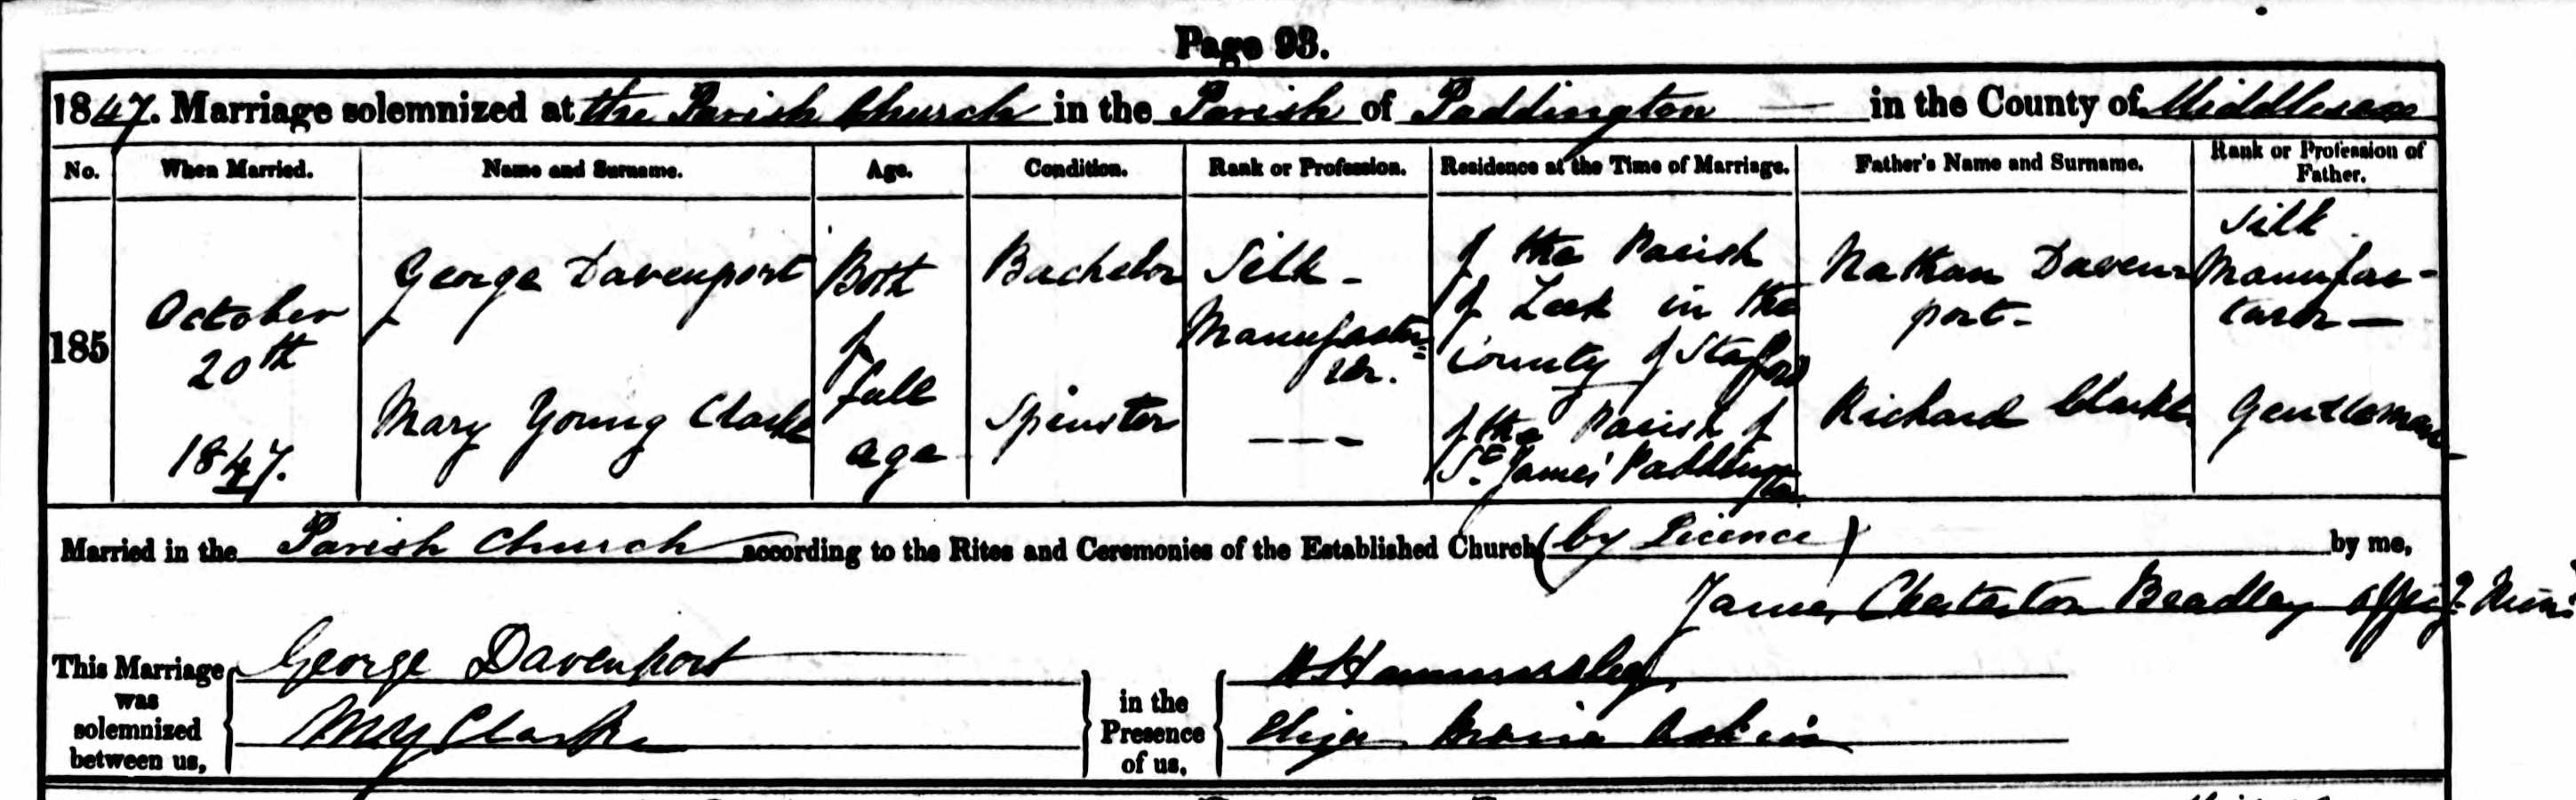 Page 93.
1847. Marriage solemnized at the Parish Church in the Parish of Paddington — in the County of Middlesex
No. When Married. Name and Surname. Age. Condition. Rank or Profession. Residence at the Time of Marriage. Father's Name and Surname. Rank or Profession of Father.
185
October
20th
1847.
George Davenport
Mary Young Clarke
Both
of
full
age
Bachelor
Spinster
Silk -
Manufactu=
rer.
- - -
of the Parish
of Leek in the
County of Stafford
of the Parish of
St. James' Paddington
Nathan Daven
port-
Richard Clarke
Silk
Manufac-
turer —
Gentleman
Married in the Parish Church according to the Rites and Ceremonies of the Established Church (by Licence) by me,
James Chesterton Bradley
This Marriage was solemnized between us,
George Davenport
MY Clarke
in the Presence of us,
Hammersley
Eliza Maria